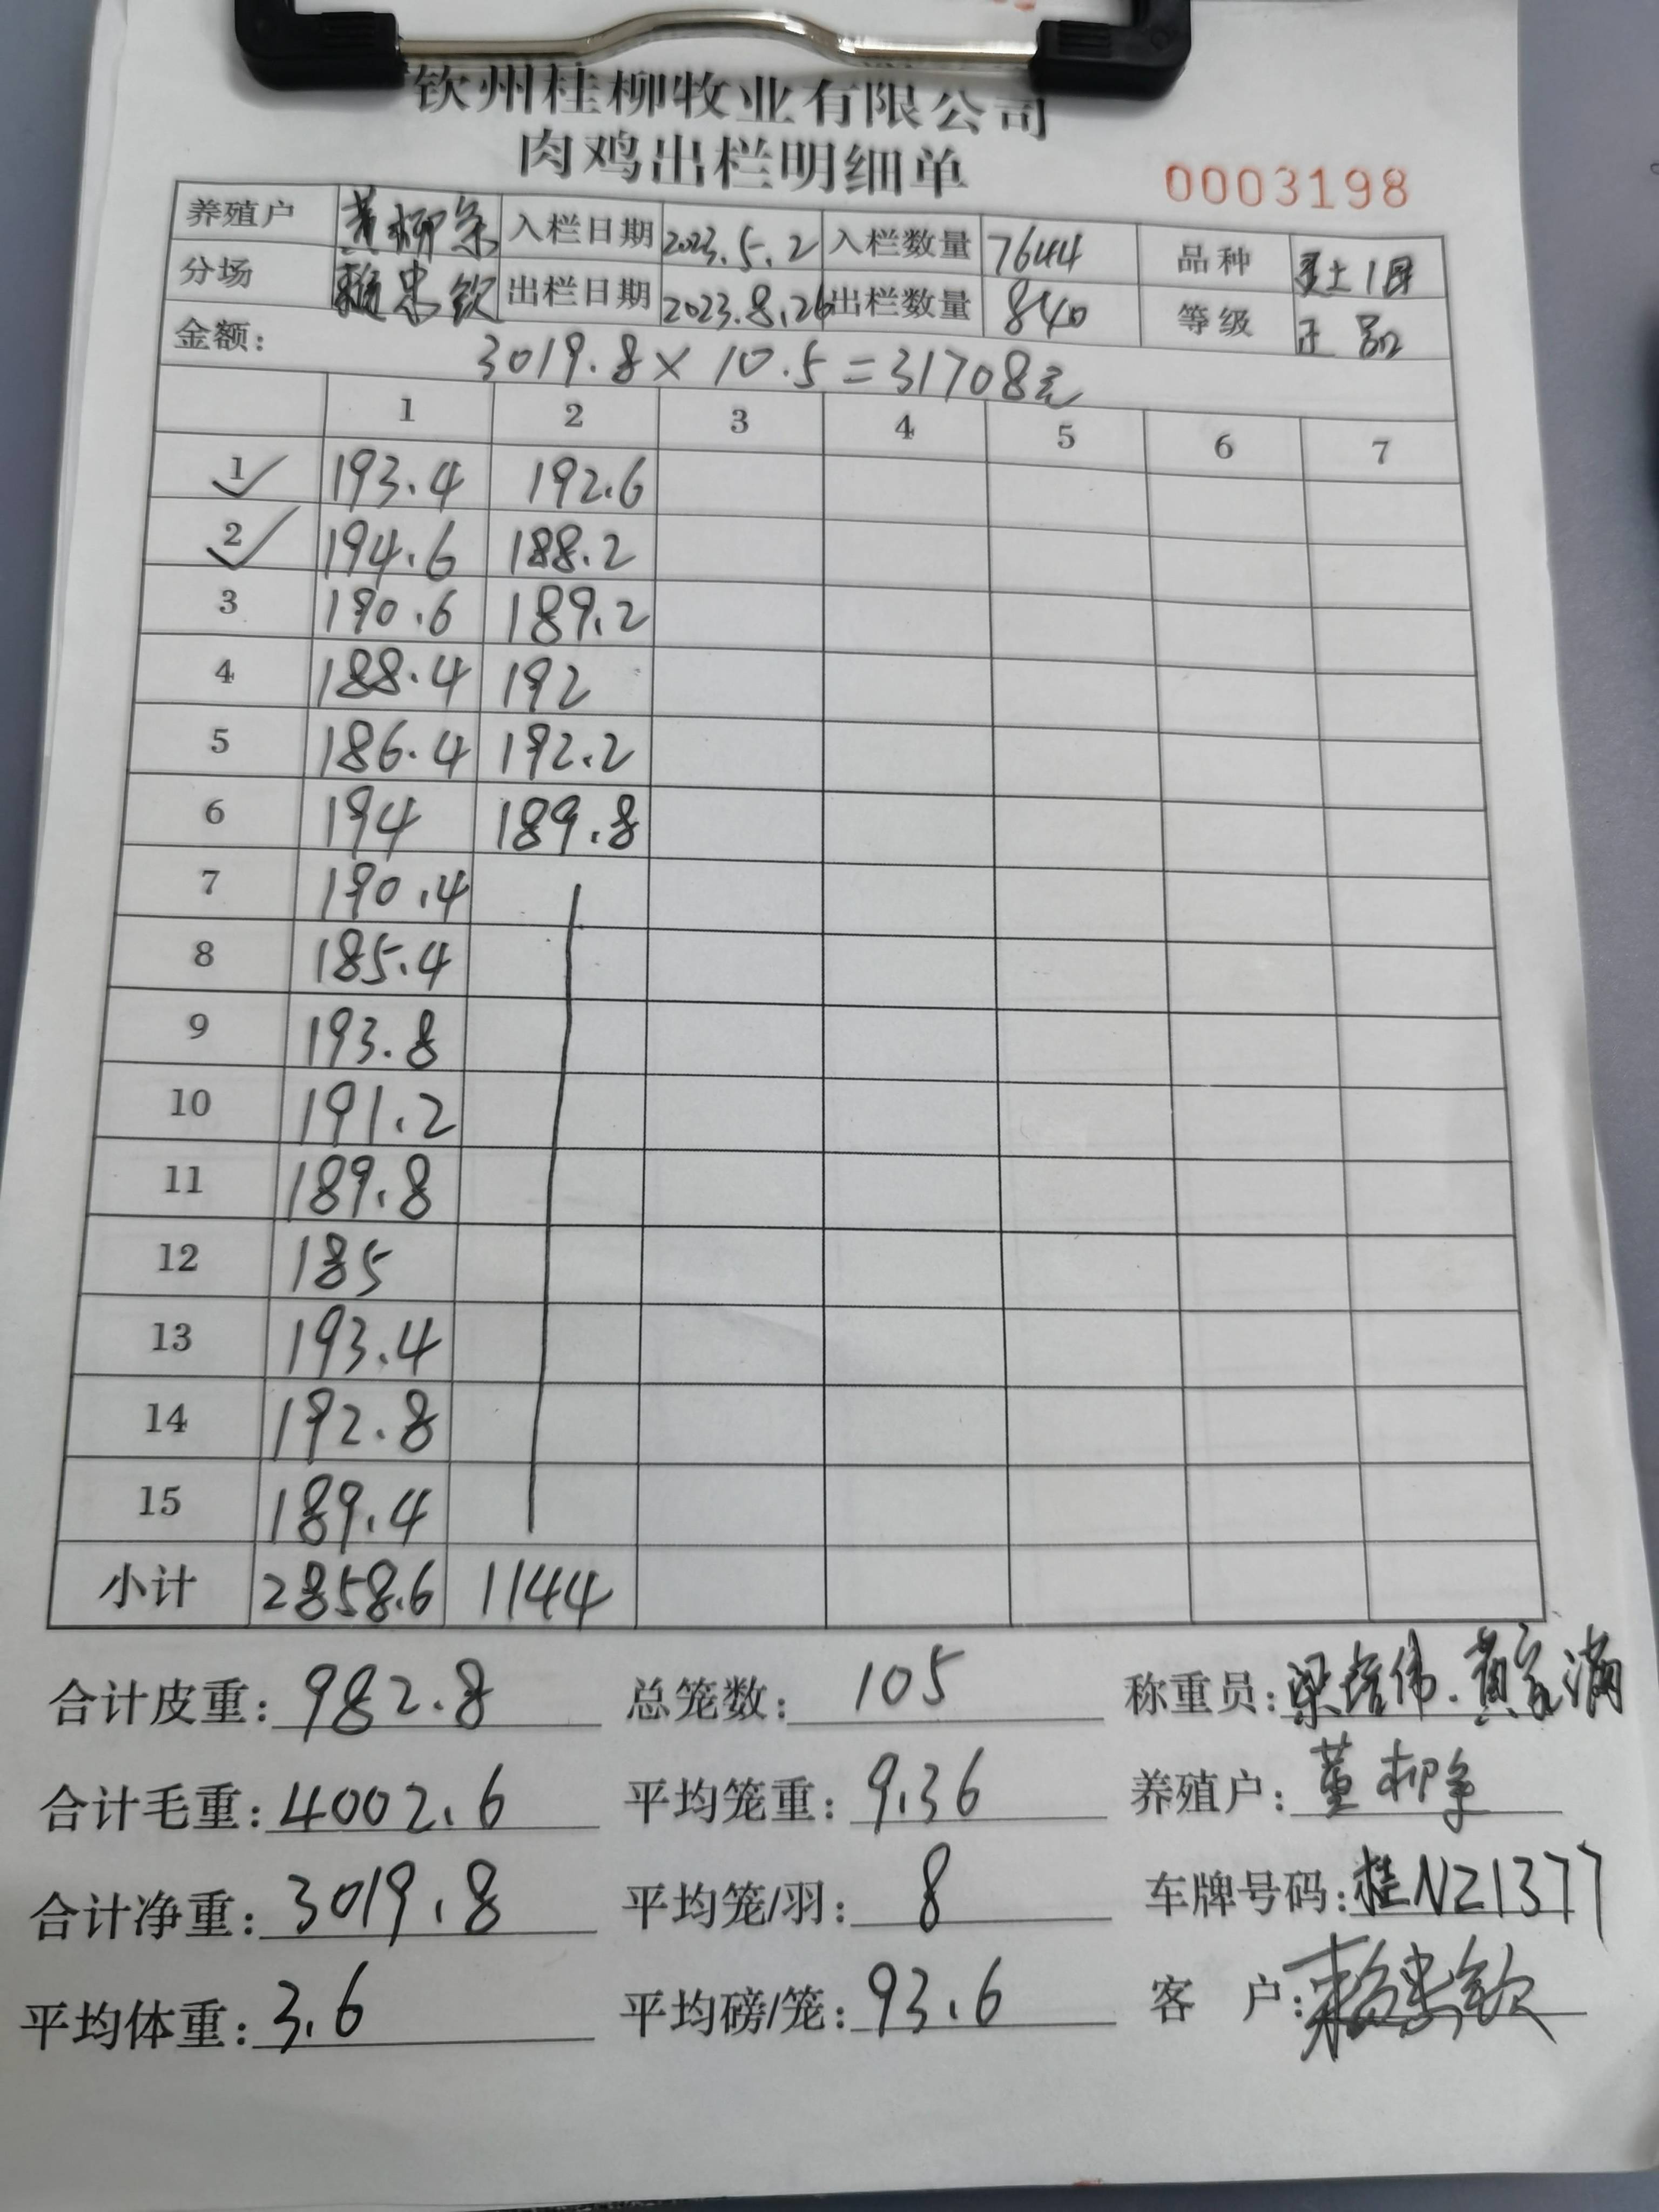 钦州桂柳牧业有限公司
肉鸡出栏明细单
0003198
养殖户 黄柳条 入栏日期 2023.5.2 入栏数量 7644 品种 土1
分场 赖忠钦 出栏日期 2023.8.26 出栏数量 840 等级 正品
金额: 3019.8×10.5=31708元
1 2 3 4 5 6 7
1 193.4 192.6
2 194.6 188.2
3 190.6 189.2
4 188.4 192
5 186.4 192.2
6 194 189.8
7 190.4
8 185.4
9 193.8
10 191.2
11 189.8
12 185
13 193.4
14 192.8
15 189.4
小计 2858.6 1144
合计皮重: 982.8 总笼数: 105 称重员: 梁培伟.黄家满
合计毛重: 4002.6 平均笼重: 9.36 养殖户:
合计净重: 3019.8 平均笼/羽: 8 车牌号码: 桂NZ1377
平均体重: 3.6 平均磅/笼: 93.6 客户: 赖忠钦